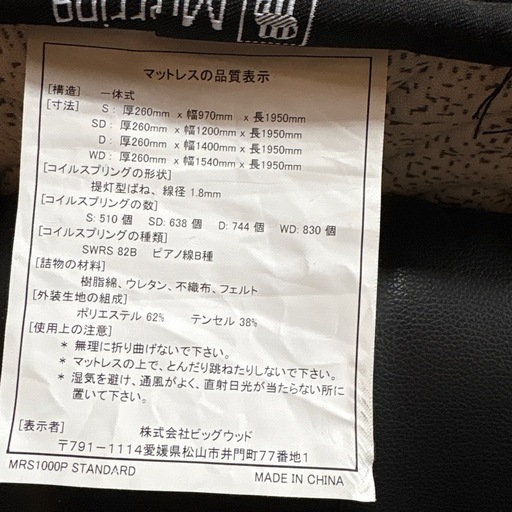 マットレスの品質表示
[構造] 一体式
[寸法] S : 厚260mm x 幅970mm x 長1950mm
SD : 厚260mm x 幅1200mm x 長1950mm
D : 厚260mm x 幅1400mm x 長1950mm
WD : 厚260mm x 幅1540mm x 長1950mm
[コイルスプリングの形状]
提灯型ばね、線径 1.8mm
[コイルスプリングの数]
S: 510 個 SD: 638 個 D: 744 個 WD: 830 個
[コイルスプリングの種類]
SWRS 82B ピアノ線B種
[詰物の材料]
樹脂綿、ウレタン、不織布、フェルト
[外装生地の組成]
ポリエステル 62% テンセル 38%
[使用上の注意]
* 無理に折り曲げないで下さい。
* マットレスの上で、とんだり跳ねたりしないで下さい。
* 湿気を避け、通風がよく、直射日光が当たらない所に
置いて下さい。
[表示者] 株式会社ビッグウッド
〒791-1114愛媛県松山市井門町77番地1
MRS1000P STANDARD MADE IN CHINA